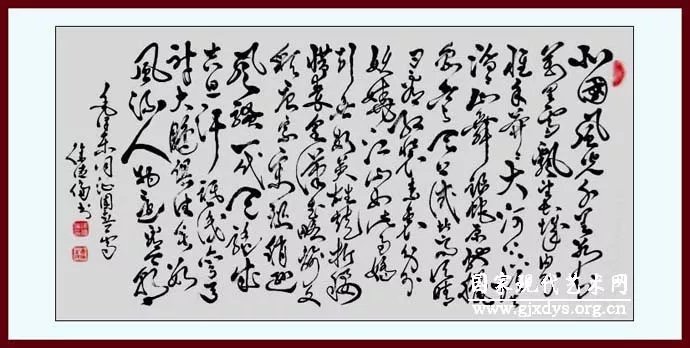 北國风光千里冰封
万里雪飘望长城内外
惟余莽莽大河上下顿失
滔滔山舞银蛇原驰蜡
象欲与天公试比高须晴
日看红装素裹分外
妖娆江山如此多娇
引无数英雄竞折腰
惜秦皇汉武略输文
采唐宗宋祖稍逊
风骚一代天骄成
吉思汗只识弯弓
射大雕俱往矣数
风流人物还看今朝
毛泽东词沁园春雪
徐书
国家现代艺术网
www.gjxdys.org.cn